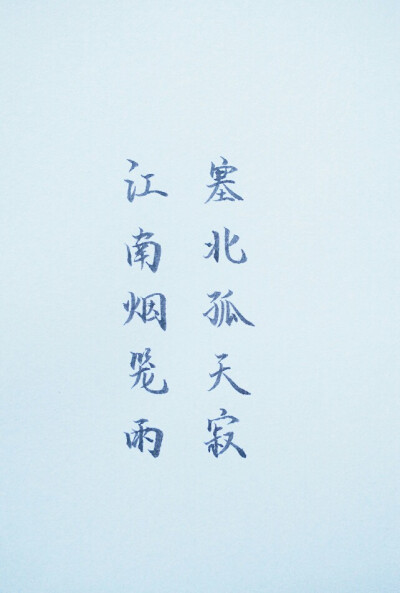 塞北孤天寂
江南烟笼雨